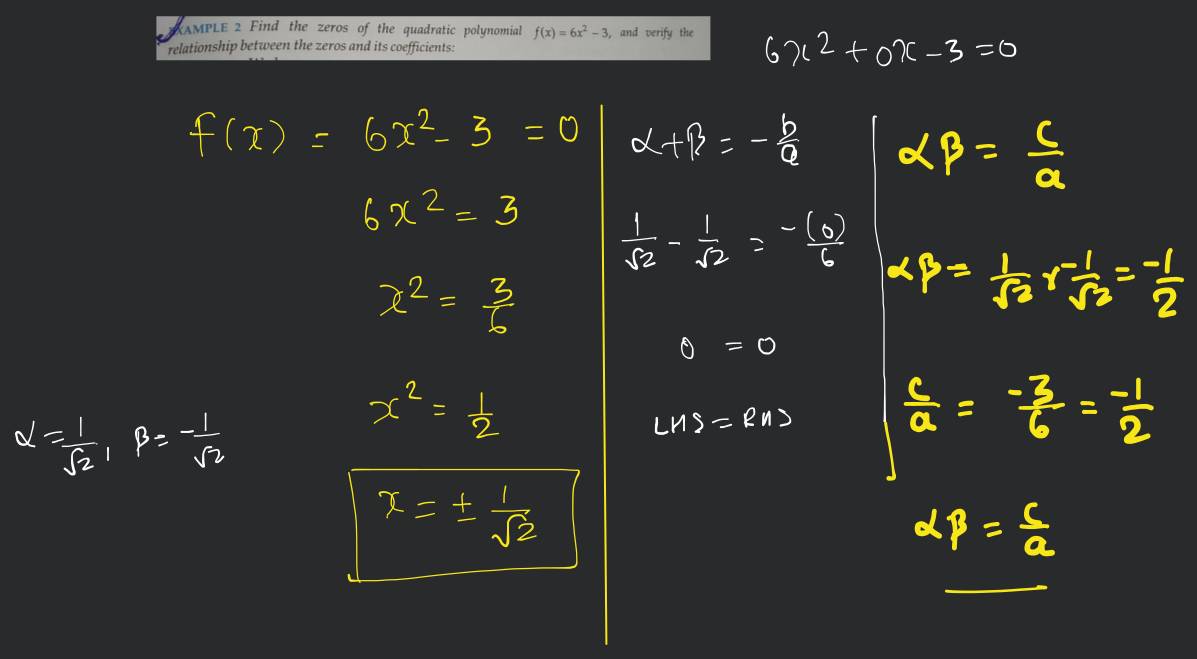 EXAMPLE 2 Find the zeros of the quadratic polynomial f(x) = 6x² – 3, and verify the
relationship between the zeros and its coefficients:
6x² + 0x – 3 = 0
f(x) = 6x² – 3 = 0
6x² = 3
x² = 3/6
x² = 1/2
α = 1/√2, β = -1/√2
x = ± 1/√2
α + β = - b/a
1/√2 - 1/√2 = -(0)/6
0 = 0
LHS = RHS
αβ = c/a
αβ = 1/√2 × -1/√2 = -1/2
c/a = -3/6 = -1/2
αβ = c/a